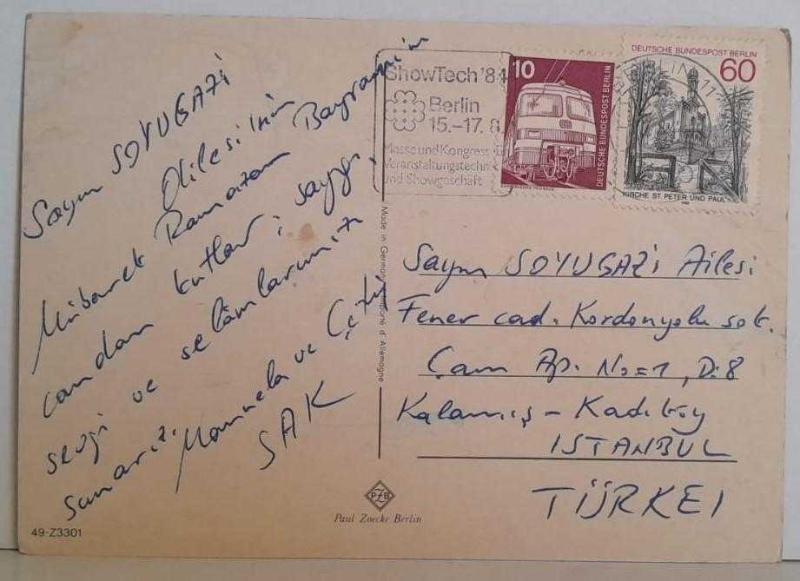 Sayın SOYUGAZİ
Ailesi'nin
Mübarek Ramazan Bayramını
candan kutlar, saygı,
sevgi ve selâmlarımızı
sunarız. Manuela ve Çetin
SAK
ShowTech '84
Berlin
15.–17. 6.
Messe und Kongress für
Veranstaltungstechnik
und Showgeschäft
10
DEUTSCHE BUNDESPOST BERLIN
DEUTSCHE BUNDESPOST BERLIN
60
KIRCHE ST. PETER UND PAUL
BERLIN 11
Made in Germany Imprimé d'Allemagne
Sayın SOYUGAZİ Ailesi
Fener cad. Kordonyolu sok.
Çam Ap. No=1, D:8
Kalamış – Kadıköy
ISTANBUL
TÜRKEI
PZB
Paul Zoecke Berlin
49-Z3301